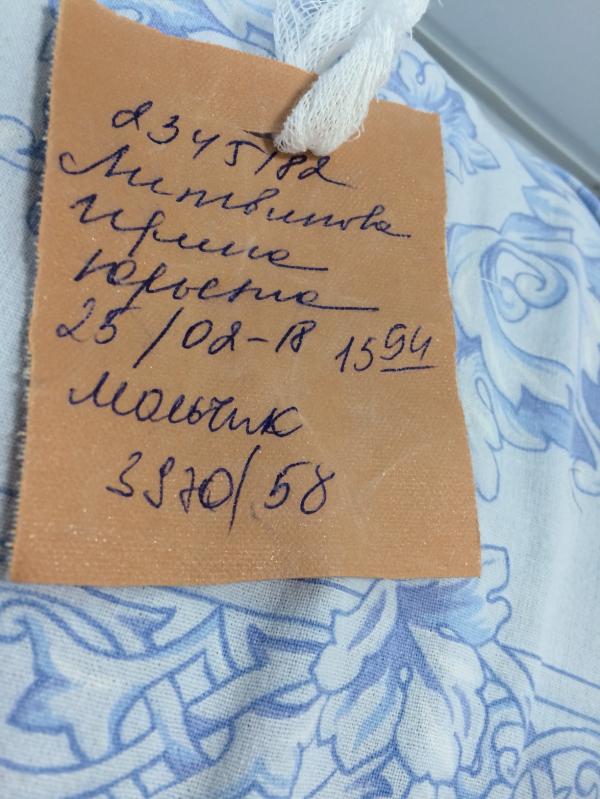 2345/82
Литвинова
Ирина
Юрьевна
25/02-18 15 94
Мальчик
3970/58